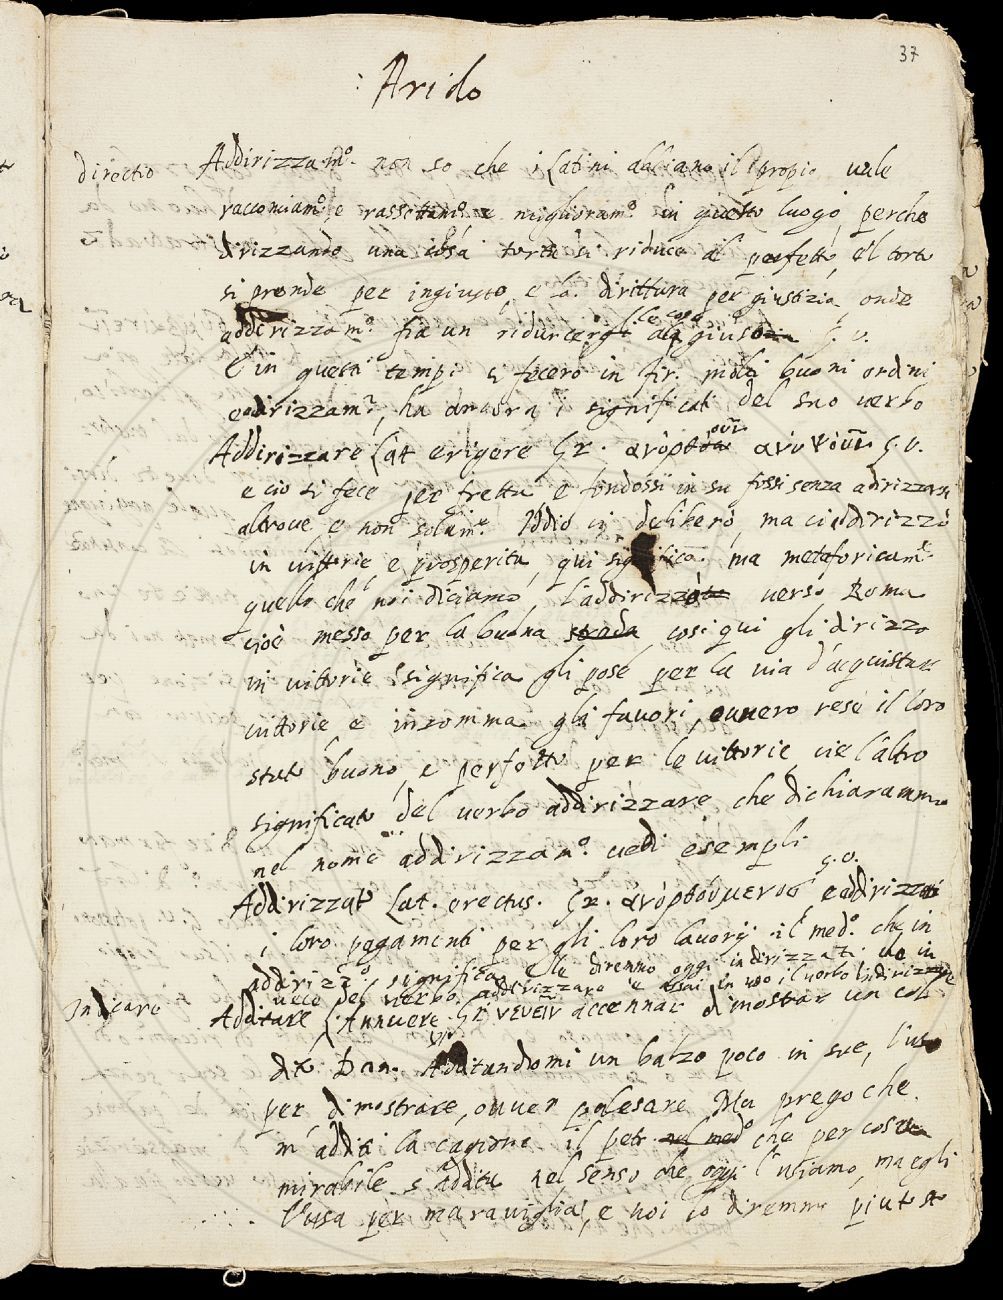 37
Arido
directio
Addirizzam.o non so che i Latini abbiano il propio vale
racconciam.o, e rassettam.o e miglioram.o in questo luogo, perche
dirizzando una cosa torta si riduce al perfetto, e'l torto
si prende per ingiusto, e la dirittura per giustizia, onde
addirizzam.o fia un ridurre le cose al giusto G. V.
E in questi tempi si fecero in Fir. molti buoni ordini
e dirizzam.ti, ha ancora i significati del suo verbo
Addirizzare Lat erigere Gr. G. V.
e cio si fece per fretta e fondossi in su fossi senza adirizzarsi
altrove e non solam.e Iddio ci deliberò, ma ci addirizzò
in vittorie e prosperità, qui significa ma metaforicam.te
quello che noi diciamo, l'addirizzò verso Roma
cioè messo per la buona strada così qui gli dirizzò
in vittorie significa gli pose per la via d'acquistar
vittorie e insomma gli favorì, ovvero rese il loro
stato buono, e perfetto per le vittorie, vie l'altro
significato del verbo addirizzare che dichiarammo
nel nome addirizzam.o vedi esempli
Addirizzato Lat. erectus. Gr. G. V. e addirizzati
i loro pagamenti per gli loro lavorij il med.o che in
addirizz.o significa, e lo diremmo oggi indirizzati che in
vece del verbo addirizzare è assai in uso il verbo Indirizzare
Indicare
Additare Annuere Gr νεύειν accennar dimostrar un col
dito Dan. Additandomi un balzo poco in sue, l'usò
per dimostrare, ovver palesare Ma prego che
m'additi la cagione il petr. nel med.o che per cosa
mirabile s'addita nel senso che oggi l'usiamo, ma egli
l'usa per maraviglia, e noi lo diremmo piutosto